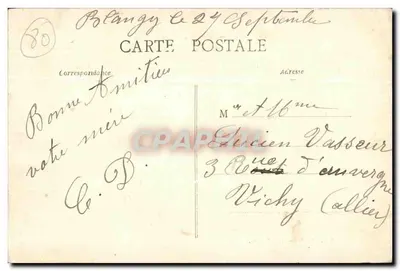 80
Blangy le 27 Septembre
CARTE POSTALE
Correspondance
Adresse
Bonne Amitiée
votre mère
C. D.
M r et Mme
Lucien Vasseur
3 Rue d'auvergne
Vichy (allier)
CPARAMA